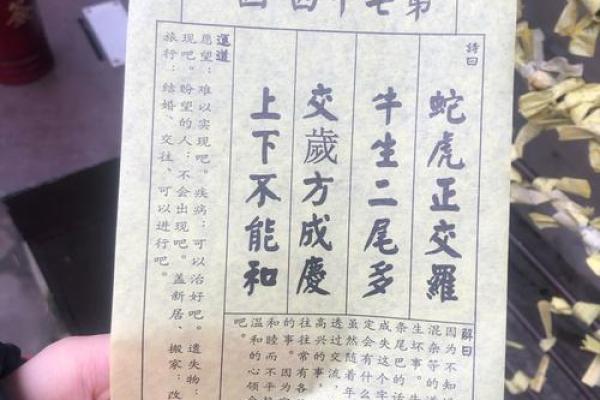 第七十四 凶
詩曰
蛇虎正交羅
牛生二尾多
交歲方成慶
上下不能和
解曰
因为不知
混杂等的道
生坏事。牛
条尾巴的话
成失这个字
定会有什么
虽然随着年
透过交流，
高兴的事。
往往常有各
的事。因为
和睦而不平
温和的心领会
吧。
運道
愿望：难以实现吧。疾病：可以治好吧。遗失物：
现吧。盼望的人：不会出现吧。盖新居、搬家：改
旅行：结婚、交往、可以进行吧。